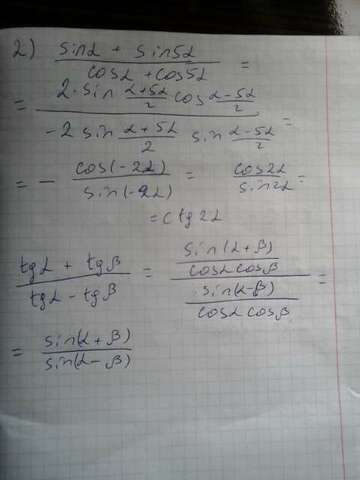 2) (sinα + sin5α)/(cosα + cos5α) =
= (2·sin (α+5α)/2 cos (α-5α)/2)/(-2 sin (α+5α)/2 sin (α-5α)/2) =
= - cos(-2α)/sin(-2α) = cos2α/sin2α =
= ctg2α
(tgα + tgβ)/(tgα - tgβ) = (sin(α+β)/(cosα cosβ))/(sin(α-β)/(cosα cosβ)) =
= sin(α+β)/sin(α-β)